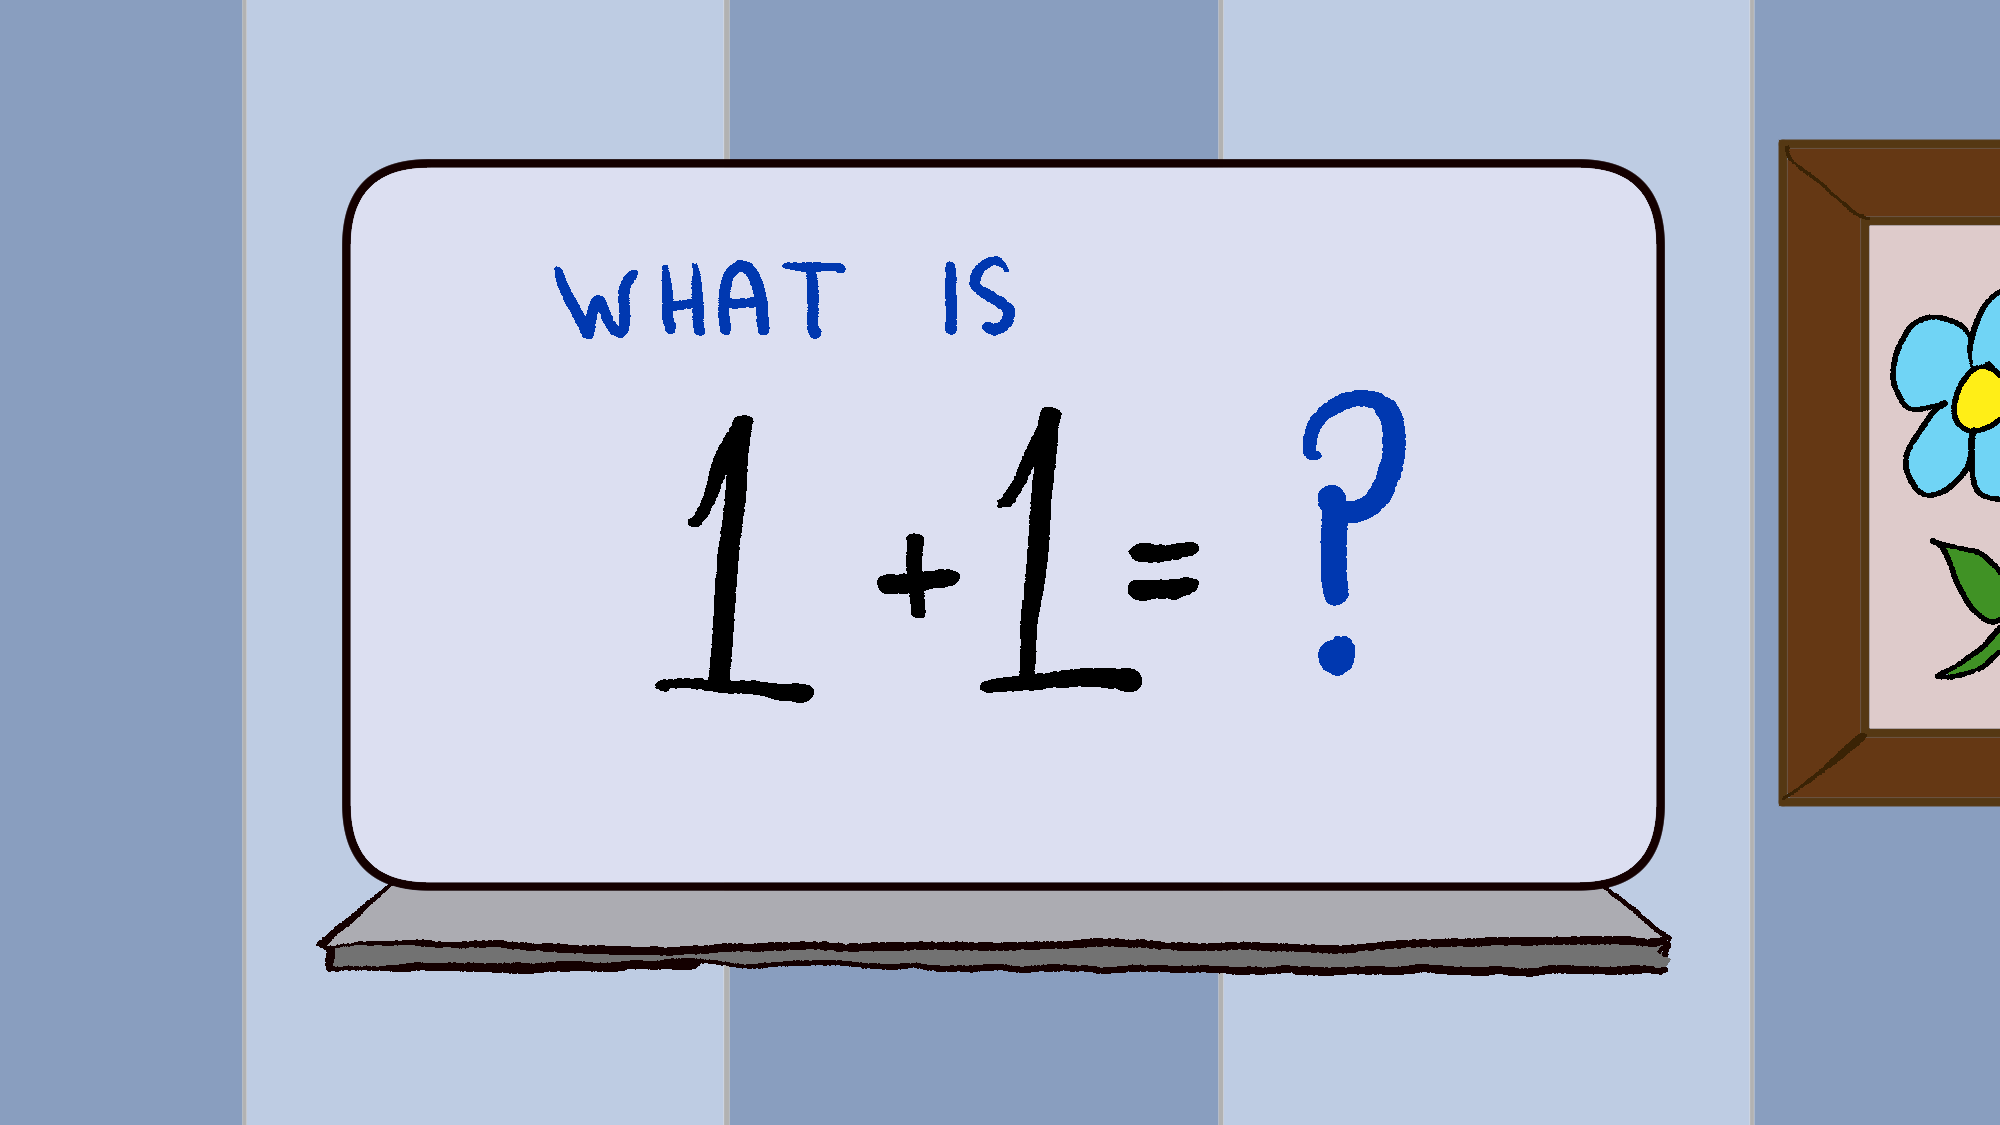 WHAT IS
1 + 1 = ?